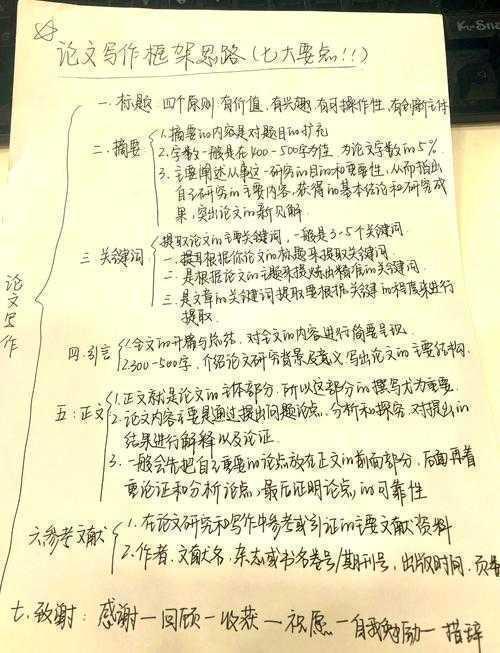 论文写作框架思路(七大要点!!!)
论文写作
一.标题 四个原则:有价值,有兴趣,有可操作性,有创新主体
二.摘要
1.摘要的内容是对题目的扩充
2.字数一般是在400-500字为佳,为论文字数的5%.
3.主要阐述从事这一研究的目的和重要性,从而指出
自己研究的主要内容,获得的基本结论和研究成
果,突出论文的新见解.
三.关键词
提取论文的主要关键词,一般是3-5个关键词.
一.提取根据你论文的标题来提取关键词.
二.是根据论文的主题来提炼出精准的关键词.
三.是文章的关键词提取要根据关键的程度来进行
提取.
四.引言
1.全文的开篇与总结,对全文的内容进行简要呈现.
2.300-500字,介绍论文研究背景及意义,写出论文的主要结构.
五:正文
1.正文就是论文的主体部分,所以这部分的撰写尤为重要.
2.论文内容主要是通过提出问题论点,分析和探究,对提出的
结果进行解释以及论证.
3.一般会先把自己主要的论点放在正文的前面部分,后面再着
重论证和分析论点,最后证明论点的可靠性
六.参考文献
1.在论文研究和写作中参考或引证的主要文献资料
2.作者,文献名,杂志或书名卷号/期刊号,出版时间,页
七.致谢: 感谢一回顾一收获一祝愿一自我勉励一措辞